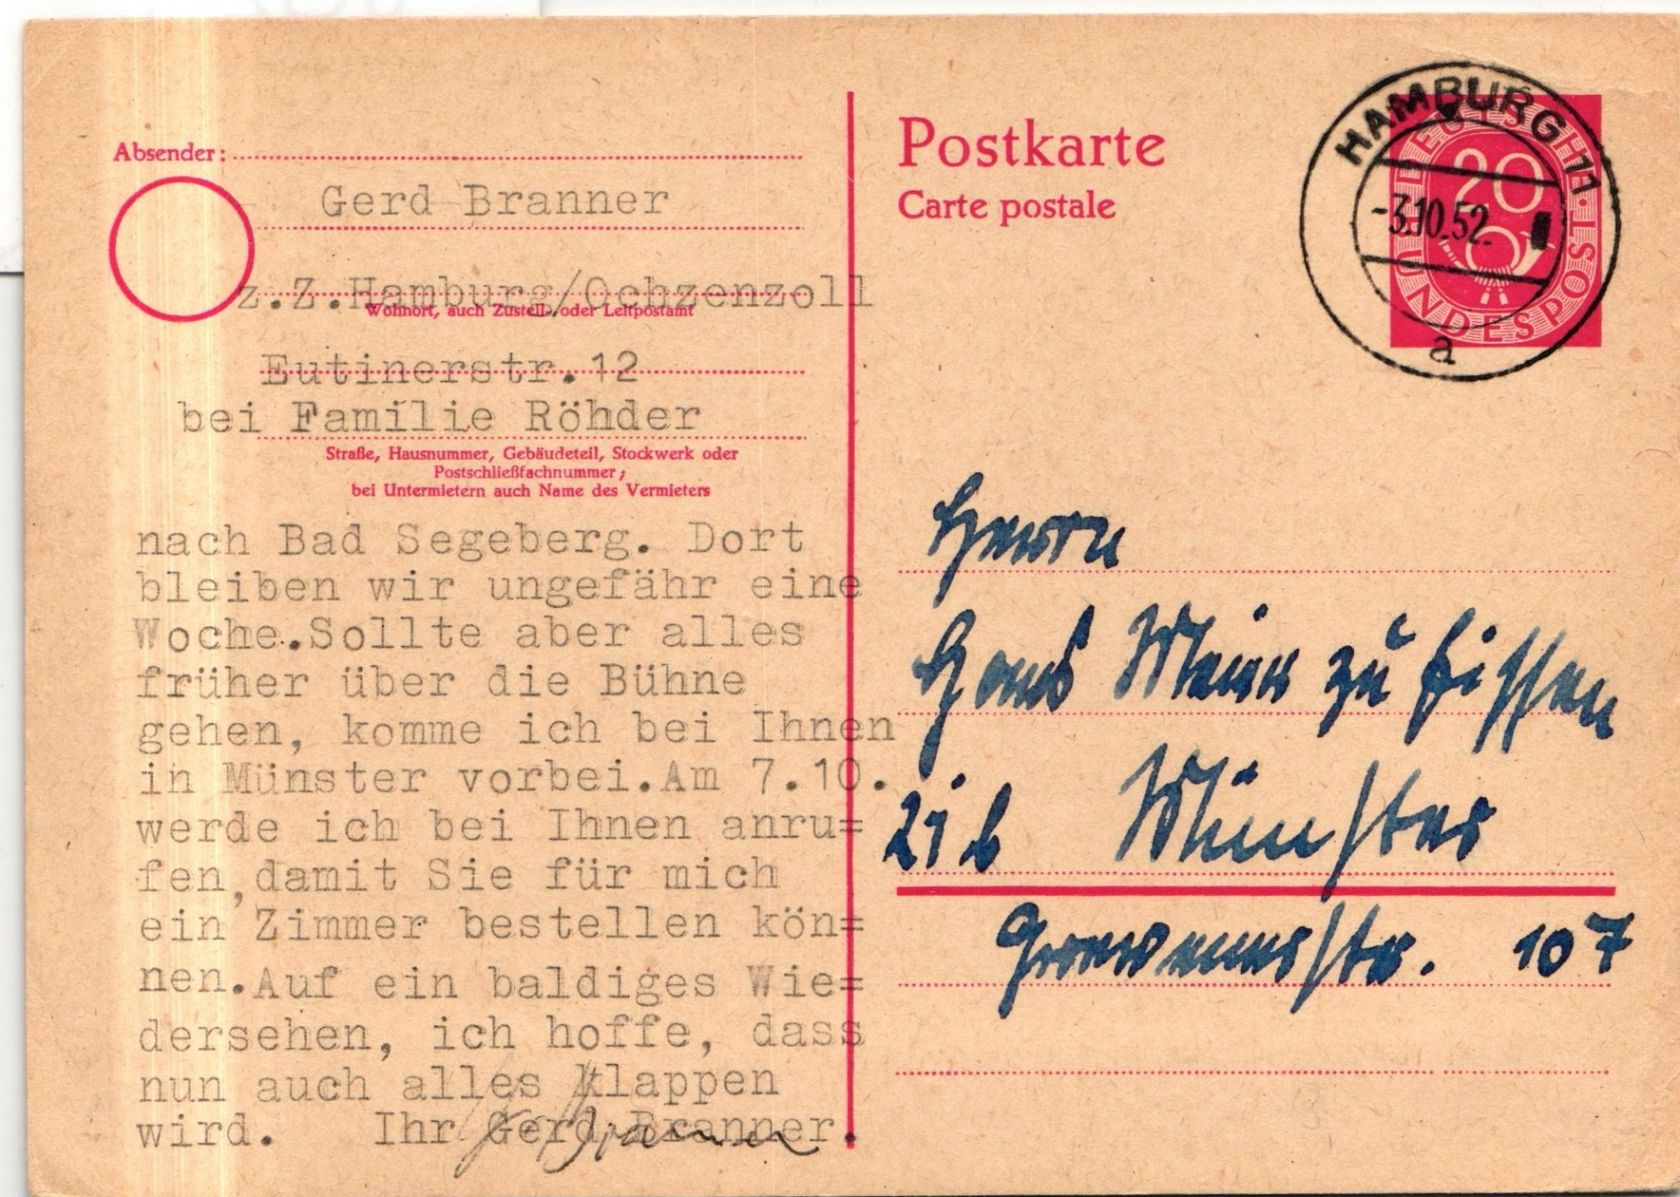 Absender:
Gerd Branner
z.Z.Hamburg/Ochzenzoll
Wohnort, auch Zustell- oder Leitpostamt
Eutinerstr.12
bei Familie Röhder
Straße, Hausnummer, Gebäudeteil, Stockwerk oder
Postschließfachnummer;
bei Untermietern auch Name des Vermieters
nach Bad Segeberg. Dort
bleiben wir ungefähr eine
Woche.Sollte aber alles
früher über die Bühne
gehen, komme ich bei Ihnen
in Münster vorbei.Am 7.10.
werde ich bei Ihnen anru=
fen,damit Sie für mich
ein Zimmer bestellen kön=
nen.Auf ein baldiges Wie=
dersehen, ich hoffe, dass
nun auch alles klappen
wird. Ihr Gerd Branner.
Postkarte
Carte postale
HAMBURG 11
-3.10.52.
a
20
DEUTSCHE BUNDESPOST
Herrn
Hans zu
21 b Münster
str. 107